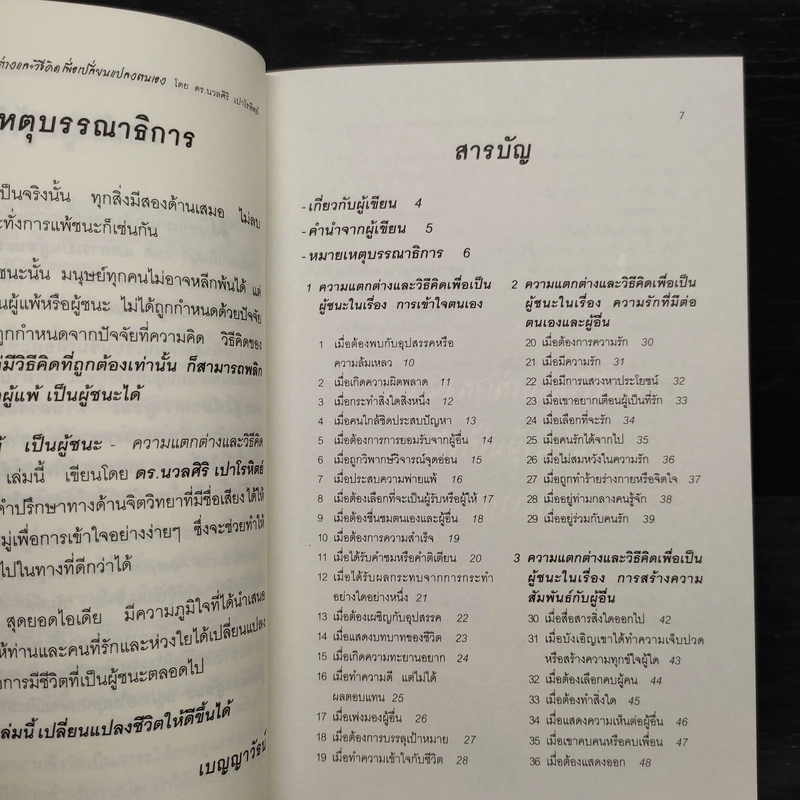 างและวิธีคิดเพื่อเปลี่ยนแปลงตนเอง โดย ดร.นวลศิริ เปาโรหิตย์
หตุบรรณาธิการ
เป็นจริงนั้น ทุกสิ่งมีสองด้านเสมอ ไม่ลบ
ะทั่งการแพ้ชนะก็เช่นกัน
ชนะนั้น มนุษย์ทุกคนไม่อาจหลีกพ้นได้ แต่
นผู้แพ้หรือผู้ชนะ ไม่ได้ถูกกำหนดด้วยปัจจัย
ถูกกำหนดจากปัจจัยที่ความคิด วิธีคิดของ
มีวิธีคิดที่ถูกต้องเท่านั้น ก็สามารถพลิก
ผู้แพ้ เป็นผู้ชนะได้
เป็นผู้ชนะ - ความแตกต่างและวิธีคิด
เล่มนี้ เขียนโดย ดร.นวลศิริ เปาโรหิตย์
คำปรึกษาทางด้านจิตวิทยาที่มีชื่อเสียงได้ให้
มู่เพื่อการเข้าใจอย่างง่ายๆ ซึ่งจะช่วยทำให้
ไปในทางที่ดีกว่าได้
สุดยอดไอเดีย มีความภูมิใจที่ได้นำเสนอ
ให้ท่านและคนที่รักและห่วงใยได้เปลี่ยนแปลง
การมีชีวิตที่เป็นผู้ชนะตลอดไป
เล่มนี้ เปลี่ยนแปลงชีวิตให้ดีขึ้นได้
เบญญาวัธน์
7
สารบัญ
- เกี่ยวกับผู้เขียน 4
- คำนำจากผู้เขียน 5
- หมายเหตุบรรณาธิการ 6
1 ความแตกต่างและวิธีคิดเพื่อเป็น
ผู้ชนะในเรื่อง การเข้าใจตนเอง
1 เมื่อต้องพบกับอุปสรรคหรือ
ความล้มเหลว 10
2 เมื่อเกิดความผิดพลาด 11
3 เมื่อกระทำสิ่งใดสิ่งหนึ่ง 12
4 เมื่อคนใกล้ชิดประสบปัญหา 13
5 เมื่อต้องการการยอมรับจากผู้อื่น 14
6 เมื่อถูกวิพากษ์วิจารณ์จุดอ่อน 15
7 เมื่อประสบความพ่ายแพ้ 16
8 เมื่อต้องเลือกที่จะเป็นผู้รับหรือผู้ให้ 17
9 เมื่อต้องชื่นชมตนเองและผู้อื่น 18
10 เมื่อต้องการความสำเร็จ 19
11 เมื่อได้รับคำชมหรือคำติเตียน 20
12 เมื่อได้รับผลกระทบจากการกระทำ
อย่างใดอย่างหนึ่ง 21
13 เมื่อต้องเผชิญกับอุปสรรค 22
14 เมื่อแสดงบทบาทของชีวิต 23
15 เมื่อเกิดความทะยานอยาก 24
16 เมื่อทำความดี แต่ไม่ได้
ผลตอบแทน 25
17 เมื่อเพ่งมองผู้อื่น 26
18 เมื่อต้องการบรรลุเป้าหมาย 27
19 เมื่อทำความเข้าใจกับชีวิต 28
2 ความแตกต่างและวิธีคิดเพื่อเป็น
ผู้ชนะในเรื่อง ความรักที่มีต่อ
ตนเองและผู้อื่น
20 เมื่อต้องการความรัก 30
21 เมื่อมีความรัก 31
22 เมื่อมีการแสวงหาประโยชน์ 32
23 เมื่อเขาอยากเตือนผู้เป็นที่รัก 33
24 เมื่อเลือกที่จะรัก 34
25 เมื่อคนรักได้จากไป 35
26 เมื่อไม่สมหวังในความรัก 36
27 เมื่อถูกทำร้ายร่างกายหรือจิตใจ 37
28 เมื่ออยู่ท่ามกลางคนรู้จัก 38
29 เมื่ออยู่ร่วมกับคนรัก 39
3 ความแตกต่างและวิธีคิดเพื่อเป็น
ผู้ชนะในเรื่อง การสร้างความ
สัมพันธ์กับผู้อื่น
30 เมื่อสื่อสารสิ่งใดออกไป 42
31 เมื่อบังเอิญเขาได้ทำความเจ็บปวด
หรือสร้างความทุกข์ใจผู้ใด 43
32 เมื่อต้องเลือกคบผู้คน 44
33 เมื่อต้องทำสิ่งใด 45
34 เมื่อแสดงความเห็นต่อผู้อื่น 46
35 เมื่อเขาคบคนหรือคบเพื่อน 47
36 เมื่อต้องแสดงออก 48